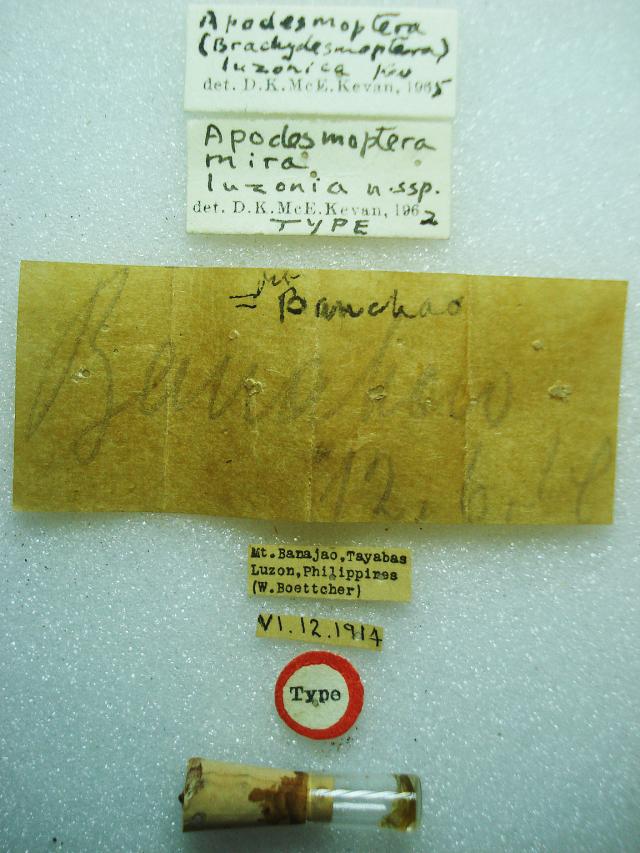 Apodesmoptera
(Brachydesmoptera)
luzonica
det. D.K.McE.Kevan, 1965
Apodesmoptera
mira
luzonia n.ssp.
det. D.K.McE.Kevan, 1962
TYPE
= Mt
Banahao
Banahao
12.6.14
Mt.Banajao,Tayabas
Luzon,Philippines
(W.Boettcher)
VI.12.1914
Type